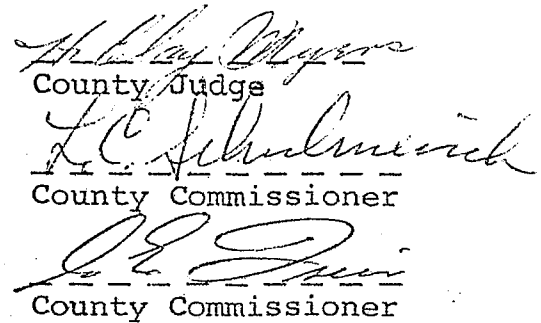 H. Clay Myers
County Judge
L. C.
County Commissioner
County Commissioner